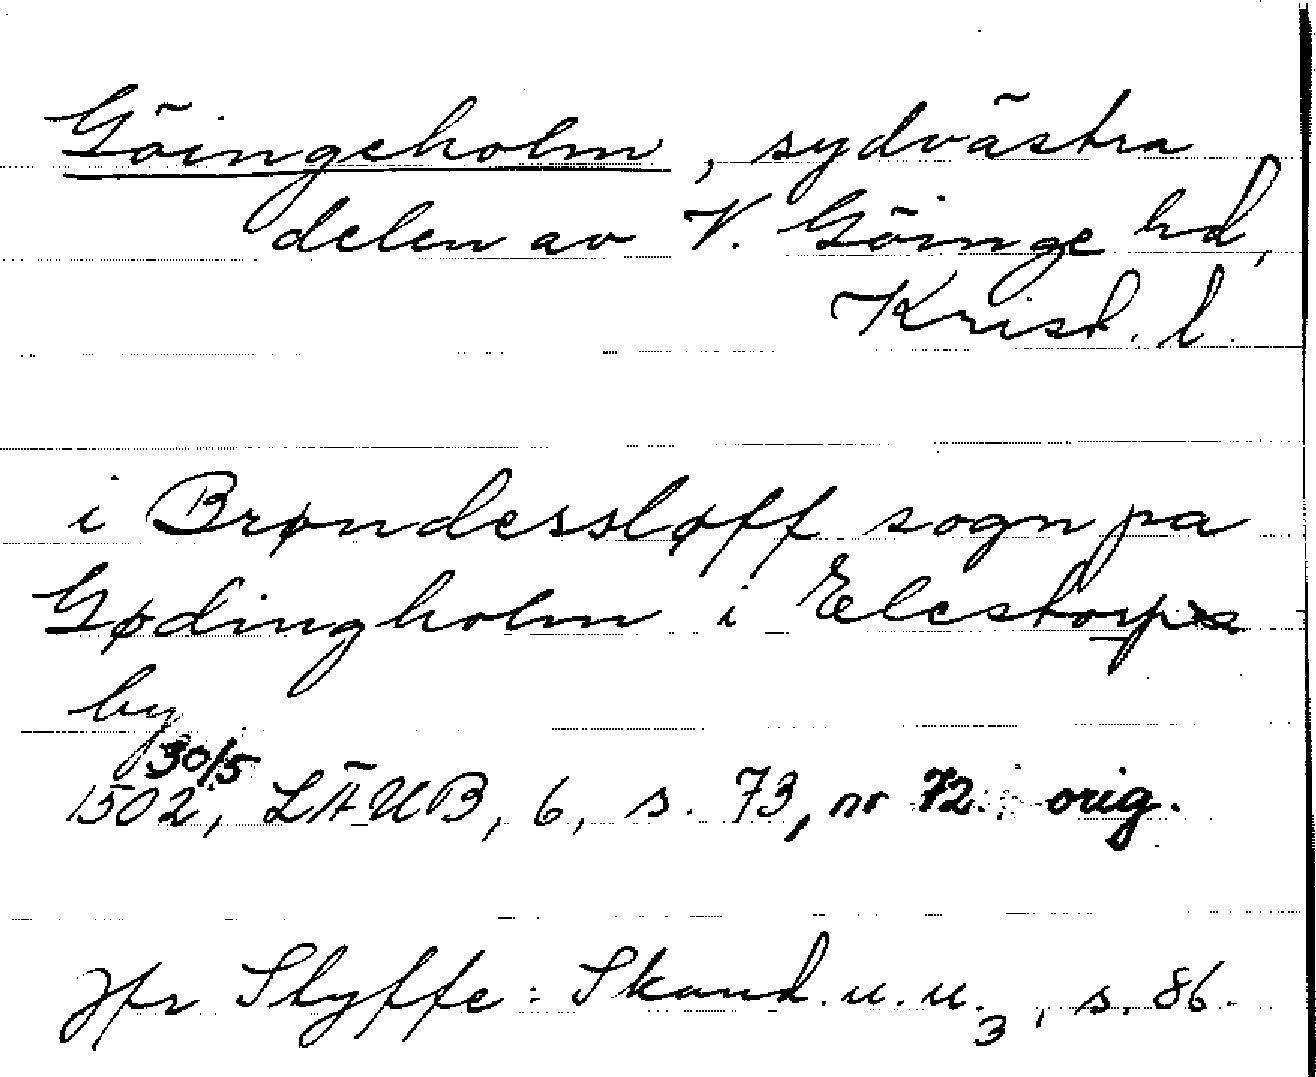 Göingeholm, sydvästra
delen av V. Göinge hd,
Krist. l.
i Brøndessløff sogn pa
Gødingholm i Elestorp
by
30/5
1502, LÄUB, 6, s. 73, nr 72. orig.
Jfr Styffe: Skand. u. u.3, s. 86.